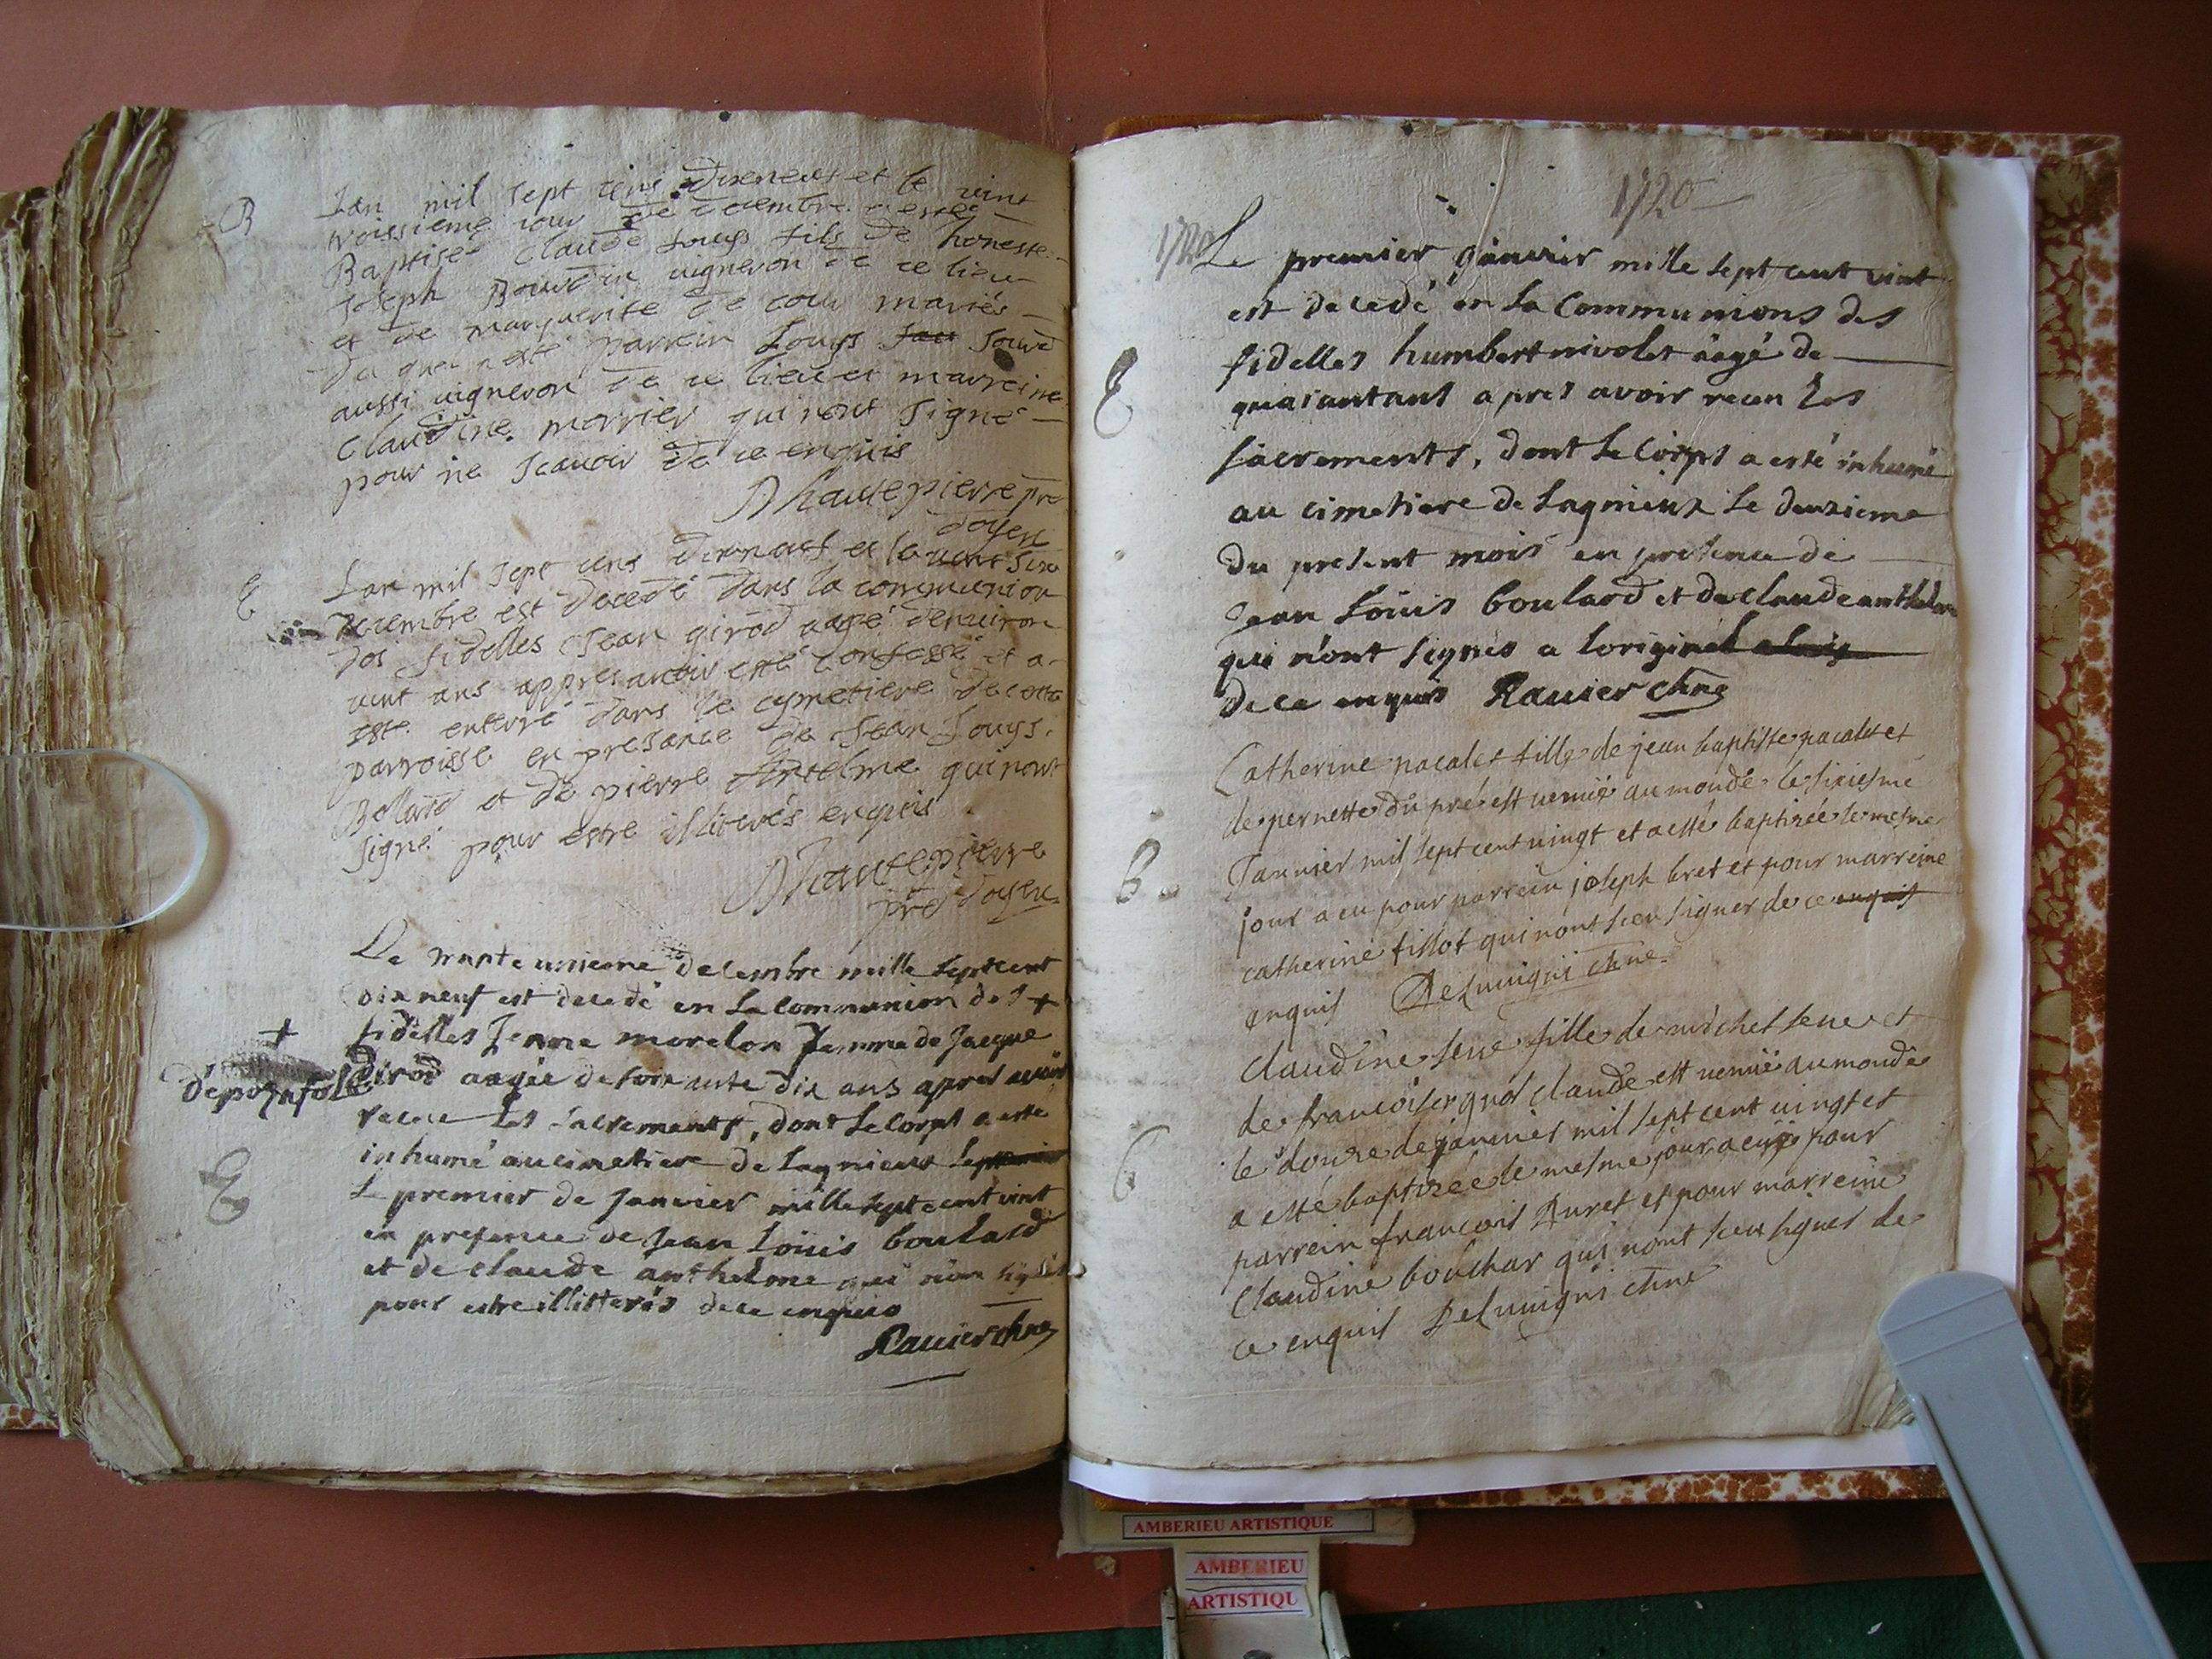 B
Lan mil sept cens dixneuf et le vint
troissieme iour de decembre a esté
Baptisé Claude Louys fils de honeste
Joseph Bourdin vigneron de ce lieu
et de marguerite de cour mariés
du quel a esté parrein Louys
aussi vigneron de ce lieu et marreine
Claudine marrier qui nont signé
pour ne scavoir de ce enquis
Dhautepierre pre
doyen
E
Lan mil sept cens dixneuf et le vint six
decembre est decedé dans la communion
dos fidelles Jean girod aagé denviron
vint ans appres avoir esté confessé et a
esté enterré dans le cymetiere de cette
parroisse en presance de Jean Louys
Bollard et de pierre Antelme qui nont
signé pour estre illiterés enquis
Dhautepierre
pre doyen
Le trante unieme decembre mille septcent
dix neuf est decedé en la Communion des +
fidelles Jenne morelon femme de Jacque
+
dépognfole
Girod aagée de soixante dix ans apres avoir
receu les sacrements, dont le corps a esté
inhumé au cimetiere de Lagnieux
E
Le premier de Janvier mille sept cent vint
en presence de Jean Loüis boulard
et de claude anthelme qui n'ont signés
pour estre illitterés de ce enquis
Ravier chne
1720
1720
Le premier janvier mille sept cent vint
est decedé en la Communions des
E
fidelles humbert nivolet âagé de
quarantans apres avoir receu les
sacrements, dont le corps a esté inhumé
au cimetiere de Lagnieux le deuzieme
du present mois en presence de
Jean Loüis boulard et de claude anthelme
qui n'ont signés a loriginel
de ce enquis Ravier chne
Catherine pacalet fille de jean baptiste pacalet et
de pernette du pré est venüe au monde le sixiesme
B.
Janvier mil sept cent vingt et a esté baptisée le mesme
jour a eu pour parrein joseph bret et pour marreine
catherine tillot qui nont sceu signer de ce enquis
enquis Delvuigni chne
Claudine seve fille de michel seve et
de françoise gros claude est venüe au monde
le douze de janvier mil sept cent vingt et
b
a esté baptisée le mesme jour a eu pour
parrein françois Buret et pour marreine
Claudine bouchar qui nont sceu signer de
ce enquis Delvuigni chne
AMBERIEU ARTISTIQUE
AMBERIEU
ARTISTIQU